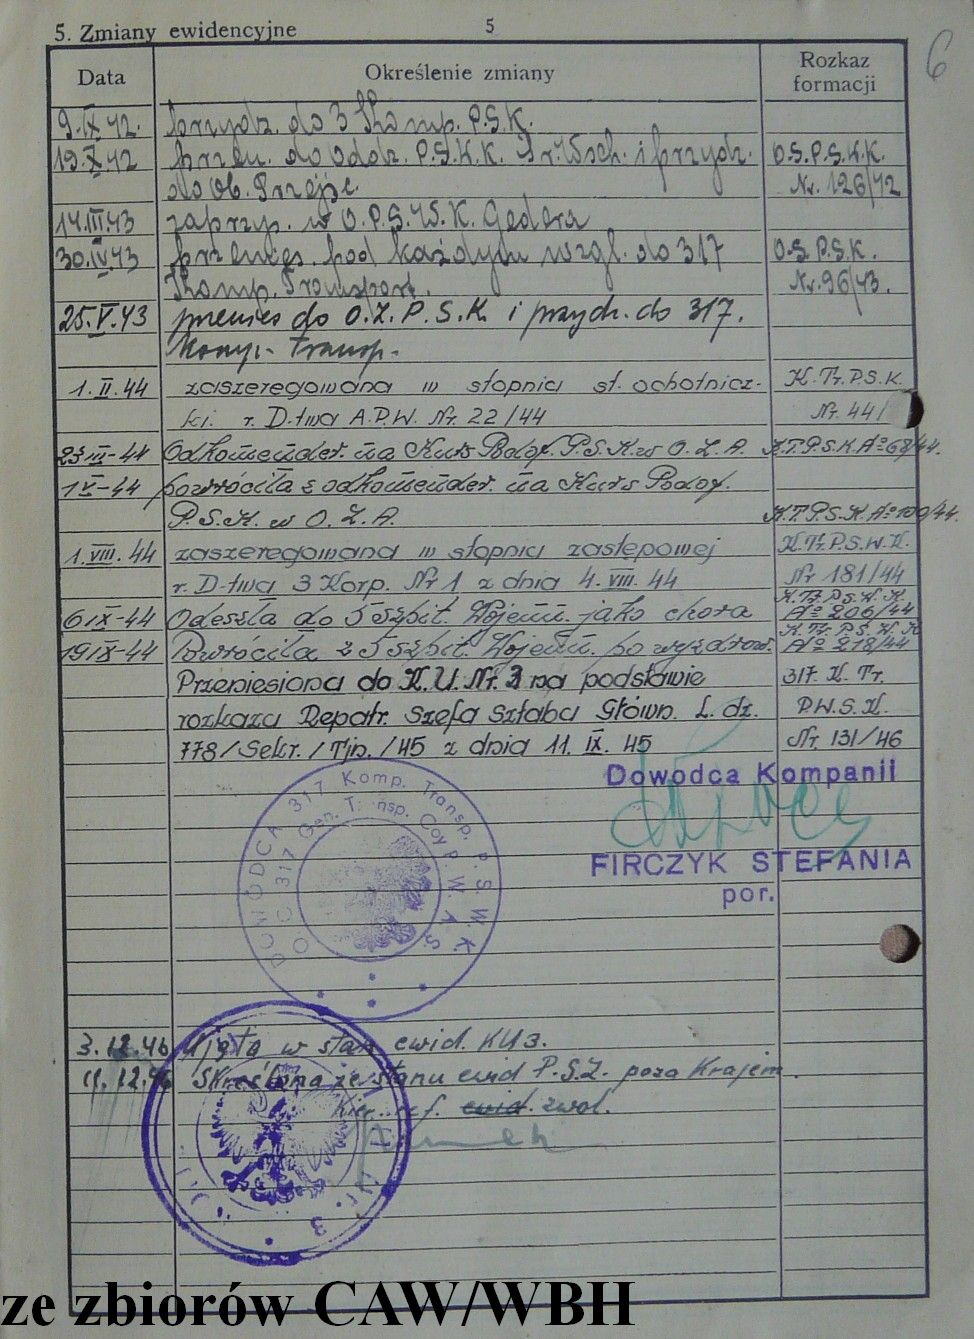 5. Zmiany ewidencyjne 5
6
Data Określenie zmiany Rozkaz formacji
9.IX 42. przydz. do 3 Komp. P.S.K.
19.X 42 przen. do Oddz. P.S.K.K. Śr. Wsch. i przydz. O.S.P.S.K.K.
do Ob. Przejśc. Nr. 126/42
14.III.43 zaprzy. w O.P.S.W.K. Gedera
30.IV.43 przenies. pod każdym wzgl. do 317 O.S P.S.K.
Komp. Transport. Nr. 96/43.
25.V.43 przenies do O.Z.P.S.K. i przydz. do 317.
Komp. Transp.
1.II.44 zaszeregowana w stopniu st. ochotnicz- K.Tr.P.S.K.
ki r. D-twa A.P.W. Nr. 22/44 Nr. 44/
23 III-44 Odkomender. na Kurs Podof. P.S.K. w O.Z.A. K.T.P.S.K No 68/44.
1 V-44 powróciła z odkomender. na Kurs Podof.
P.S.K. w O.Z.A. K.T.P.S.K No 100/44.
1.VIII.44 zaszeregowana w stopniu zastępowej K.Tr.P.S.W.K.
r. D-twa 3 Korp. Nr 1 z dnia 4.VIII.44 Nr 181/44
6 IX-44 Odeszła do 5 Szpit. Wojenn. jako chora K.Tr.P.S.W.K. No 206/44
19 IX-44 Powróciła z 5 szpit. Wojenn. po wyzdrow. K.Tr.P.S.W.K No 218/44
Przeniesiona do K.U. Nr. 3 na podstawie 317. K. Tr.
rozkazu Depatr. Szefa Sztabu Główn. L. dz. P.W.S.K.
778/Sekr./Tjn./45 z dnia 11.IX.45 Nr. 131/46
Dowódca Kompanii
FIRCZYK STEFANIA
por.
DOWÓDCA 317 Komp. Transp. P.S.W.K.
O.C 317 Gen. Transp. Coy P.W.A.S.
3.12.46 Ujęta w stan ewid. KU 3.
11.12.46 Skreślona ze stanu ewid P.S.Z. poza Krajem.
Kier. ref. ewid. zwol.
Nr. 3
ze zbiorów CAW/WBH